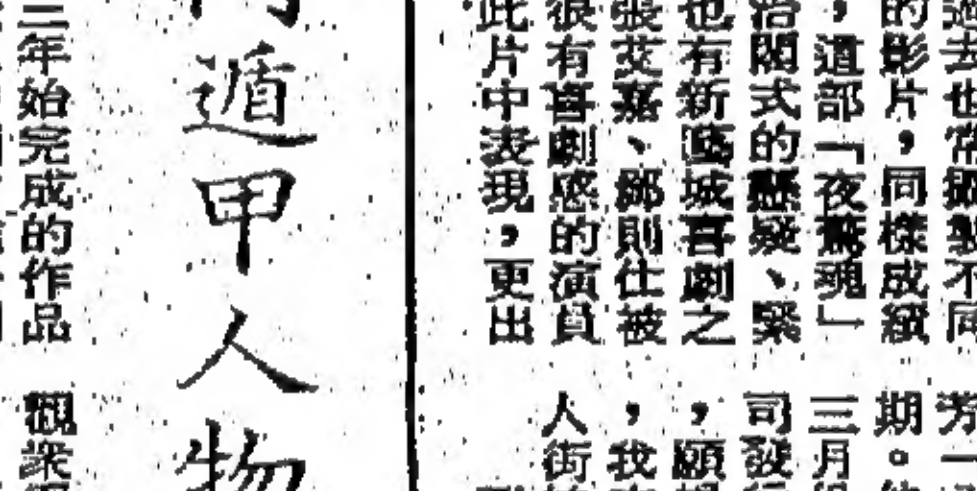 過去也常攝製不同
的影片，同樣成績
，這部「夜驚魂」
治閙式的懸疑、緊
也有新藝城喜劇之
張艾嘉、鄭則仕被
很有喜劇感的演員
此片中表現，更出
芳一
期。
三月
司發行
，願
，我
人街
遁甲人物
二年始完成的作品
觀衆